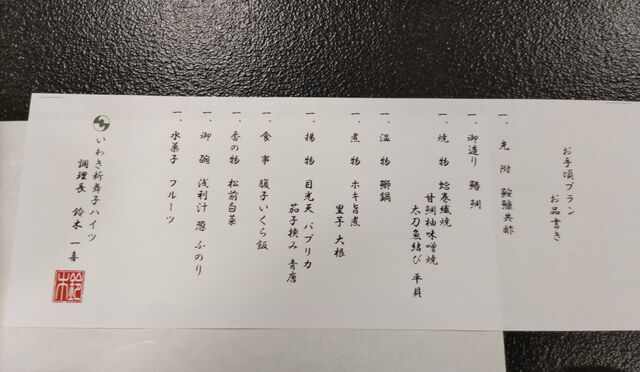 お手頃プラン
お品書き
一、先 附 鮟鱇共酢
一、御造り 鰆 鯛
一、焼 物 蛤巻繊焼
甘鯛柚味噌焼
太刀魚結び 平貝
一、温 物 鰤鍋
一、煮 物 ホキ旨煮
里芋 大根
一、揚 物 目光天 パプリカ
茄子挟み 青唐
一、食 事 腹子いくら飯
一、香の物 松前白菜
一、御 碗 浅利汁 葱 ふのり
一、水菓子 フルーツ
いわき新舞子ハイツ
調理長 鈴木 一喜
鈴木